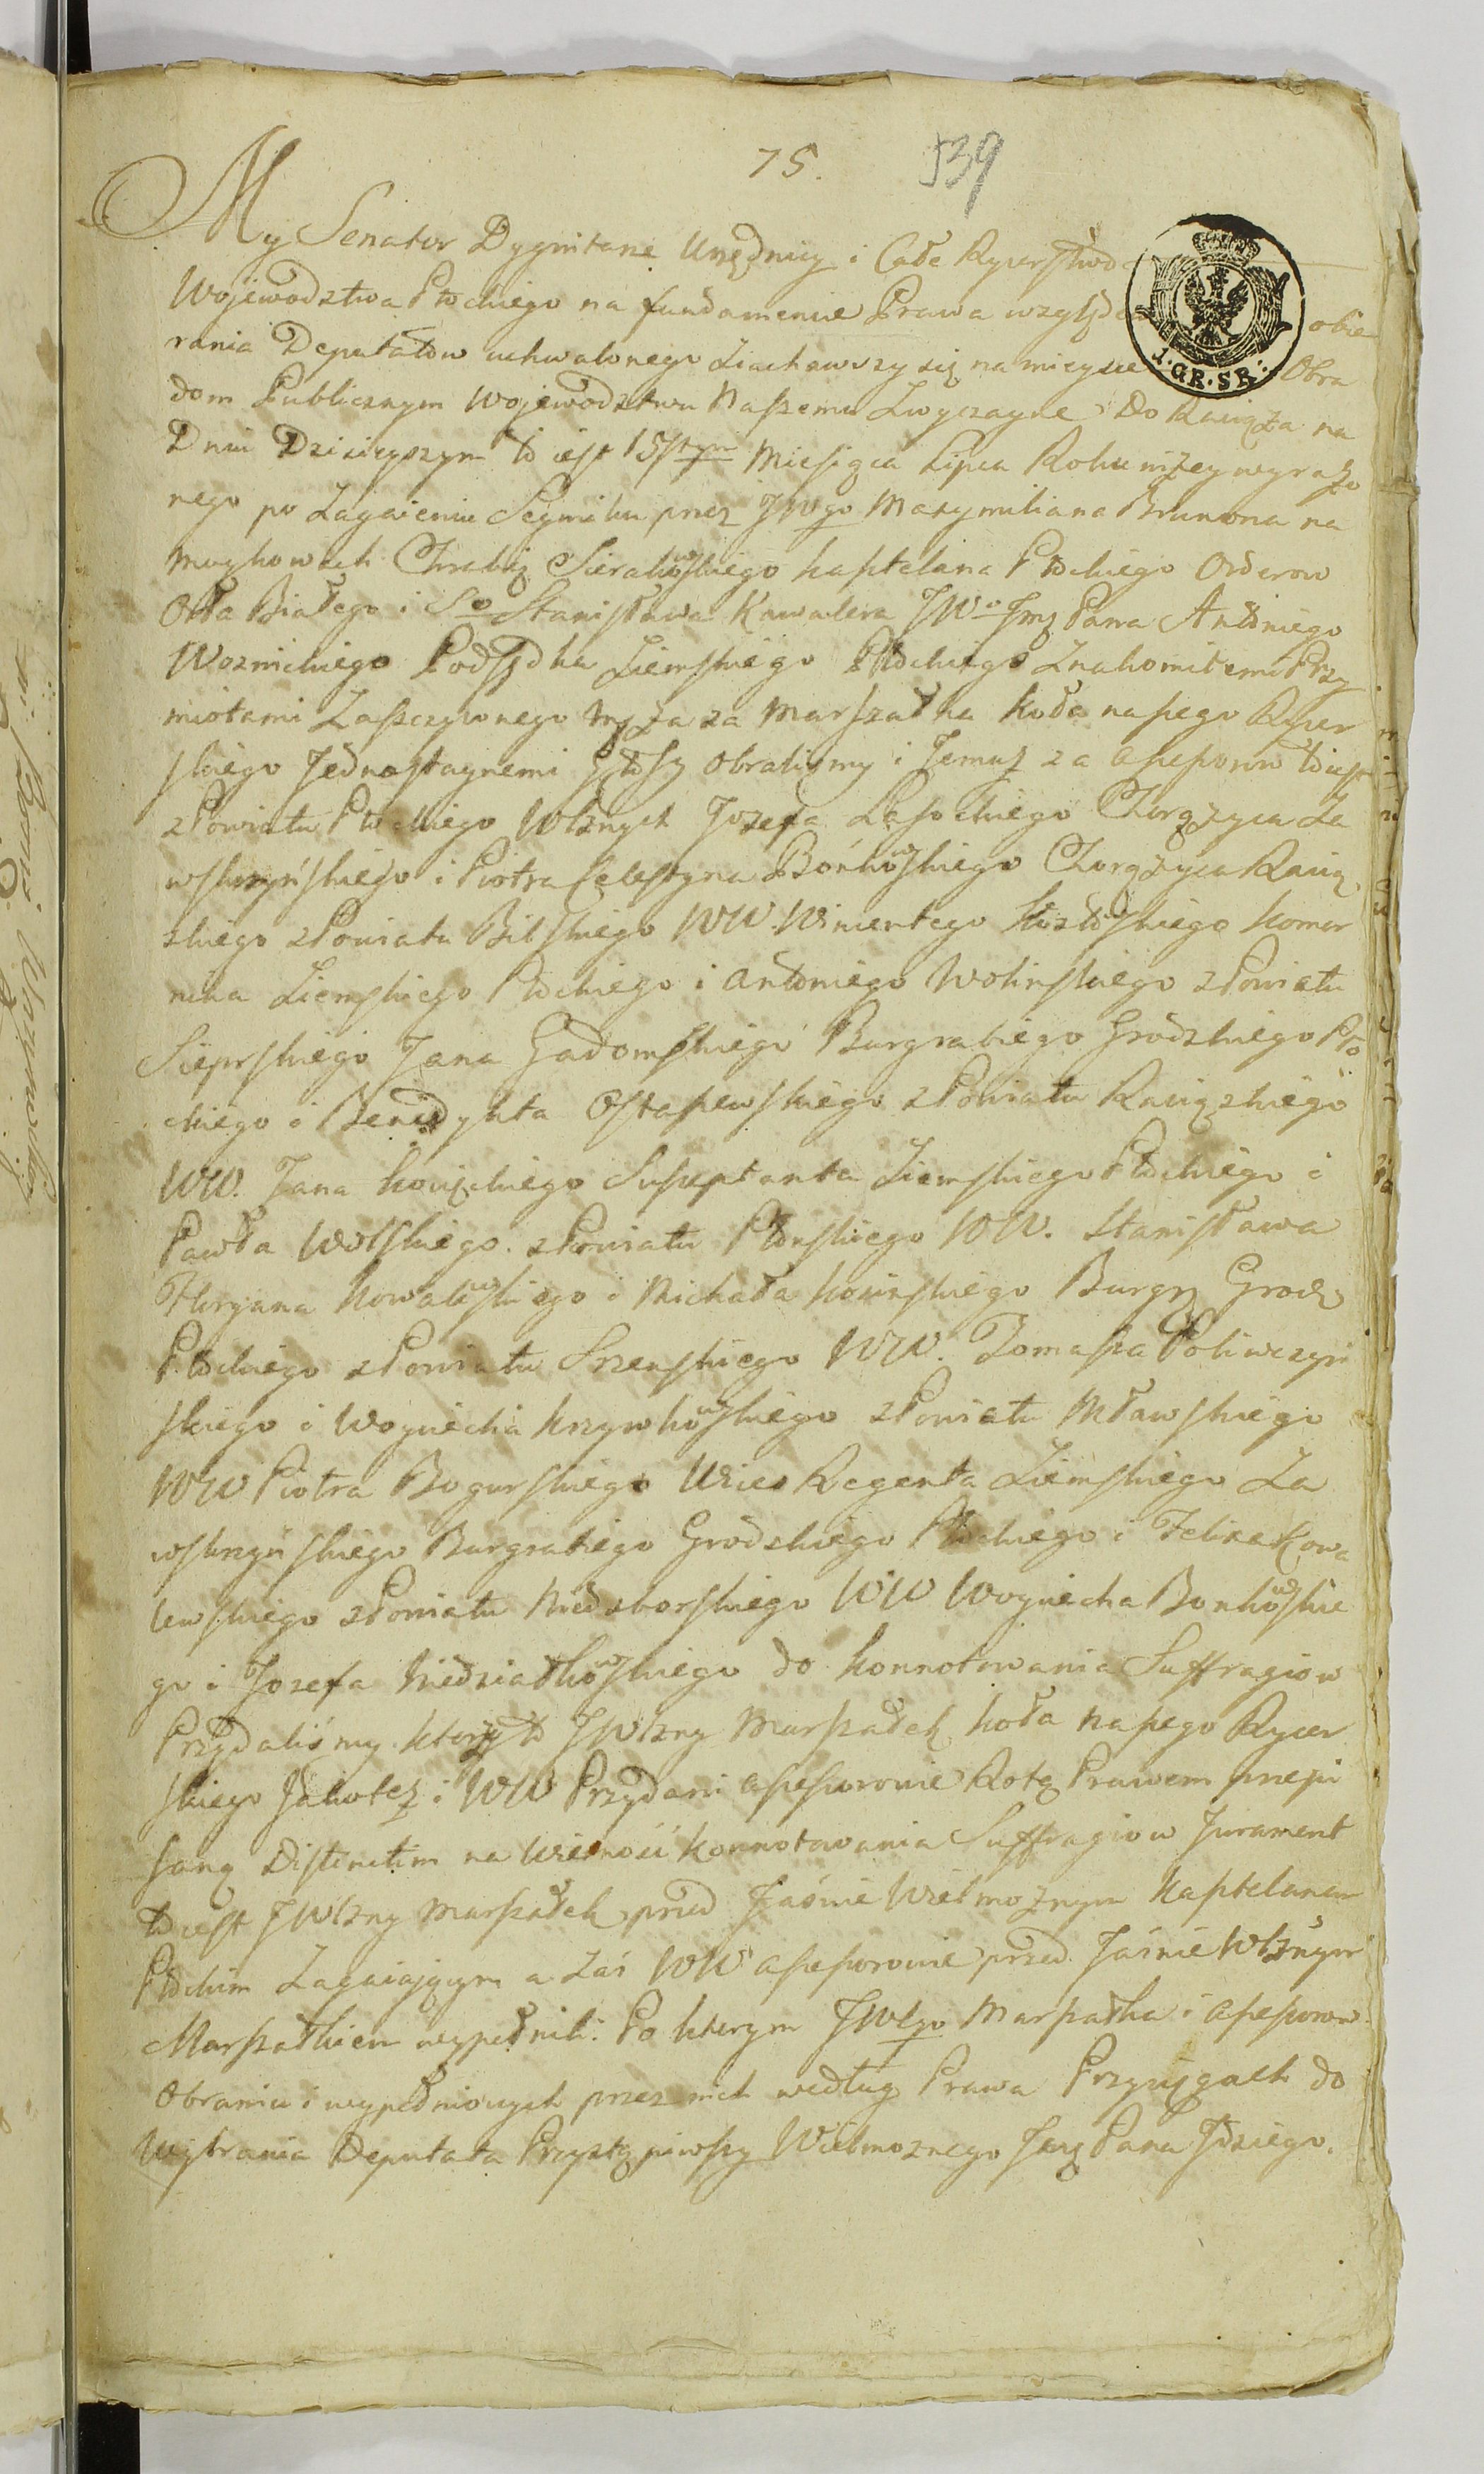 75. 539
My Senator Dygnitarze Urzędnicy i Całe Rycerstwo
Wojewodztwa Płockiego na fundamencie Prawa względem obie
rania Deputatow uchwalonego Ziachawszy się na mieysce Obra
dom Publicznym Wojewodztwu Naszemu Zwyczayne do Raciąża na
Dniu Dzisieyszym to iest 15stym Miesiąca Lipca Roku niżey wyrażo
nego po Zagaieniu Seymiku przez JWgo Maxymiliana Brunona na
Chrabię Sierakowskiego Kasztelana Płockiego Orderow
Orła Białego i So Stanisława Kawalera JWo Jmę Pana Antoniego
Woznickiego Podsędka Ziemskiego Płockiego Znakomitemi Przy
miotami Zaszczyconego Męża za Marszałka Koła naszego Rycer
skiego Jednostaynemi Głosy obralismy i Jemuż za assessorow to iest
z Powiatu Płockiego Wlznych Jozefa Lasockiego Chorążyca Za
wskrzyńskiego i Piotra Celestyna Bońkowskiego Chorążyca Raciąż
skiego z Powiatu Bilskiego WW. Wincentego Kozłowskiego Komor
nika Ziemskiego Płockiego i Antoniego Wolinskiego z Powiatu
Sieprskiego Jana Gadomskiego Burgrabiego Grodzkiego Pło
ckiego i Benedykta Ostaszewskiego z Powiatu Raciązkiego
WW. Jana Kosięckiego Suszeptanta Ziemskiego Płockiego i
Pawła Wolskiego. z Powiatu Płonskiego WW. Stanisława
Floryana Kowalewskiego i Michała Burgr Grodz
Płockiego z Powiatu Srzenskiego WW. Tomasza Poliwczyń
skiego i Woyciecha Krzywkowskiego z Powiatu Mławskiego
WW Piotra Bogurskiego Wice Regenta Ziemskiego Za
wskrzyńskiego Burgrabiego Grodzkiego Płockiego i Felixa Kowa
lewskiego z Powiatu Niedzborskiego WW Woyciecha Bonkowskie
go i Jozefa Niedziałkowskiego do konnotowania Suffragiow
Przydalismy. ktoryż to JWlzny Marszałek koła naszego Rycer
skiego Jakotez i WW Przydani assessorowie Rotę Prawem przepi
saną Distinctim na Wierność konnotowania Suffragiow Jurament
to iest JWlzny Marszałek przed Jaśnie Wielmożnym Kasztelanem
Płockim Zagaiaiącym a Zaś WW assessorowie przed Jaśnie Wlznym
Marszałkiem wypełnili. Po ktorym JWlgo Marszałka i assessorow
Obraniu i wypełnionych przez nich według Prawa Przysięgach do
Wybrania Deputata Przystąpiwszy Wielmoznego Jmę Pana Idziego.
1. GR. SR.